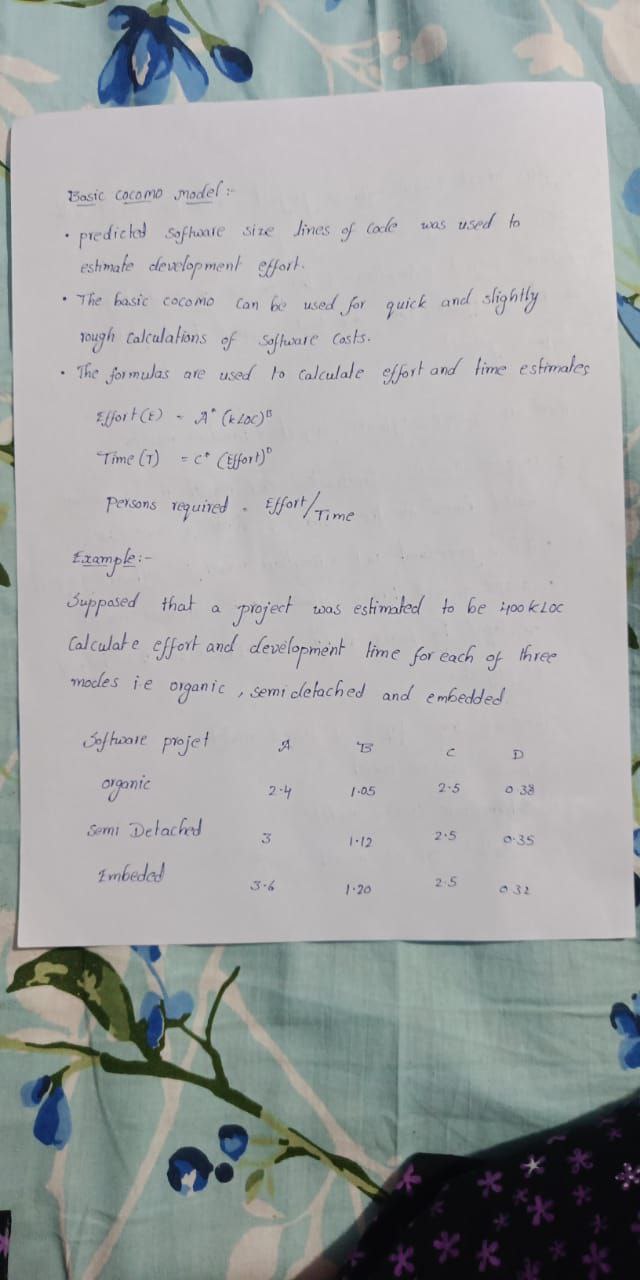 Basic cocomo model :-
• predicted software size lines of code was used to
estimate development effort.
• The basic cocomo can be used for quick and slightly
rough calculations of software costs.
• The formulas are used to calculate effort and time estimates
Effort (E) = A* (KLOC)^B
Time (T) = C* (Effort)^D
Persons required = Effort/Time
Example :-
Supposed that a project was estimated to be 400 KLOC
Calculate effort and development time for each of three
modes i.e organic, semi detached and embedded
Software projet A B C D
organic 2.4 1.05 2.5 0.38
Semi Detached 3 1.12 2.5 0.35
Embeded 3.6 1.20 2.5 0.32